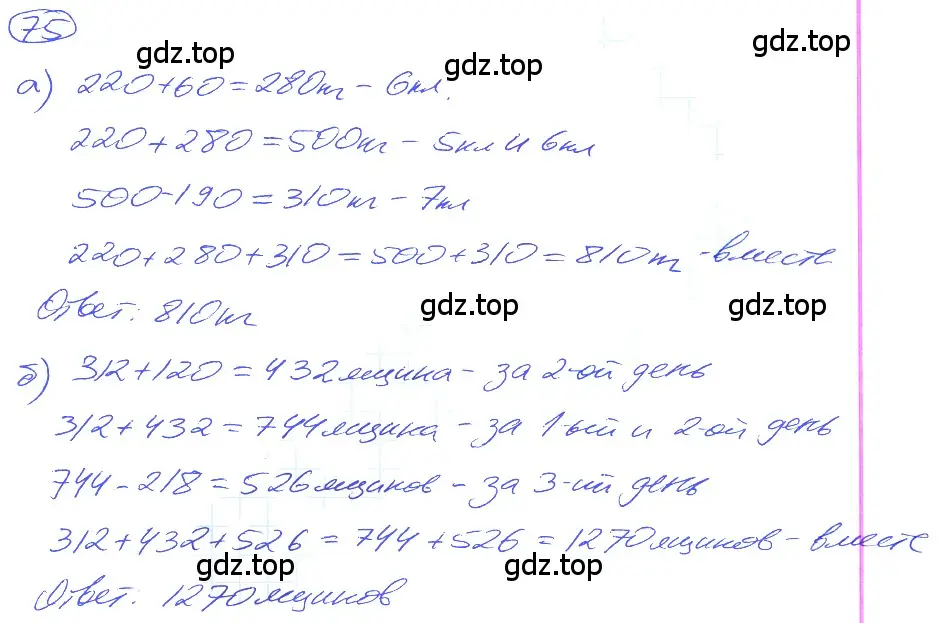 75
gdz.top
gdz.top
gdz.top
а) 220+60=280кг - 6кл.
220+280=500кг - 5кл и 6кл
500-190=310кг - 7кл
220+280+310=500+310=810кг - вместе
Ответ: 810кг
gdz.top
gdz.top
б) 312+120=432ящика - за 2-ой день
312+432=744ящика - за 1-ый и 2-ой день
744-218=526ящиков - за 3-ий день
312+432+526=744+526=1270ящиков - вместе
gdz.top
gdz.top
Ответ: 1270ящиков